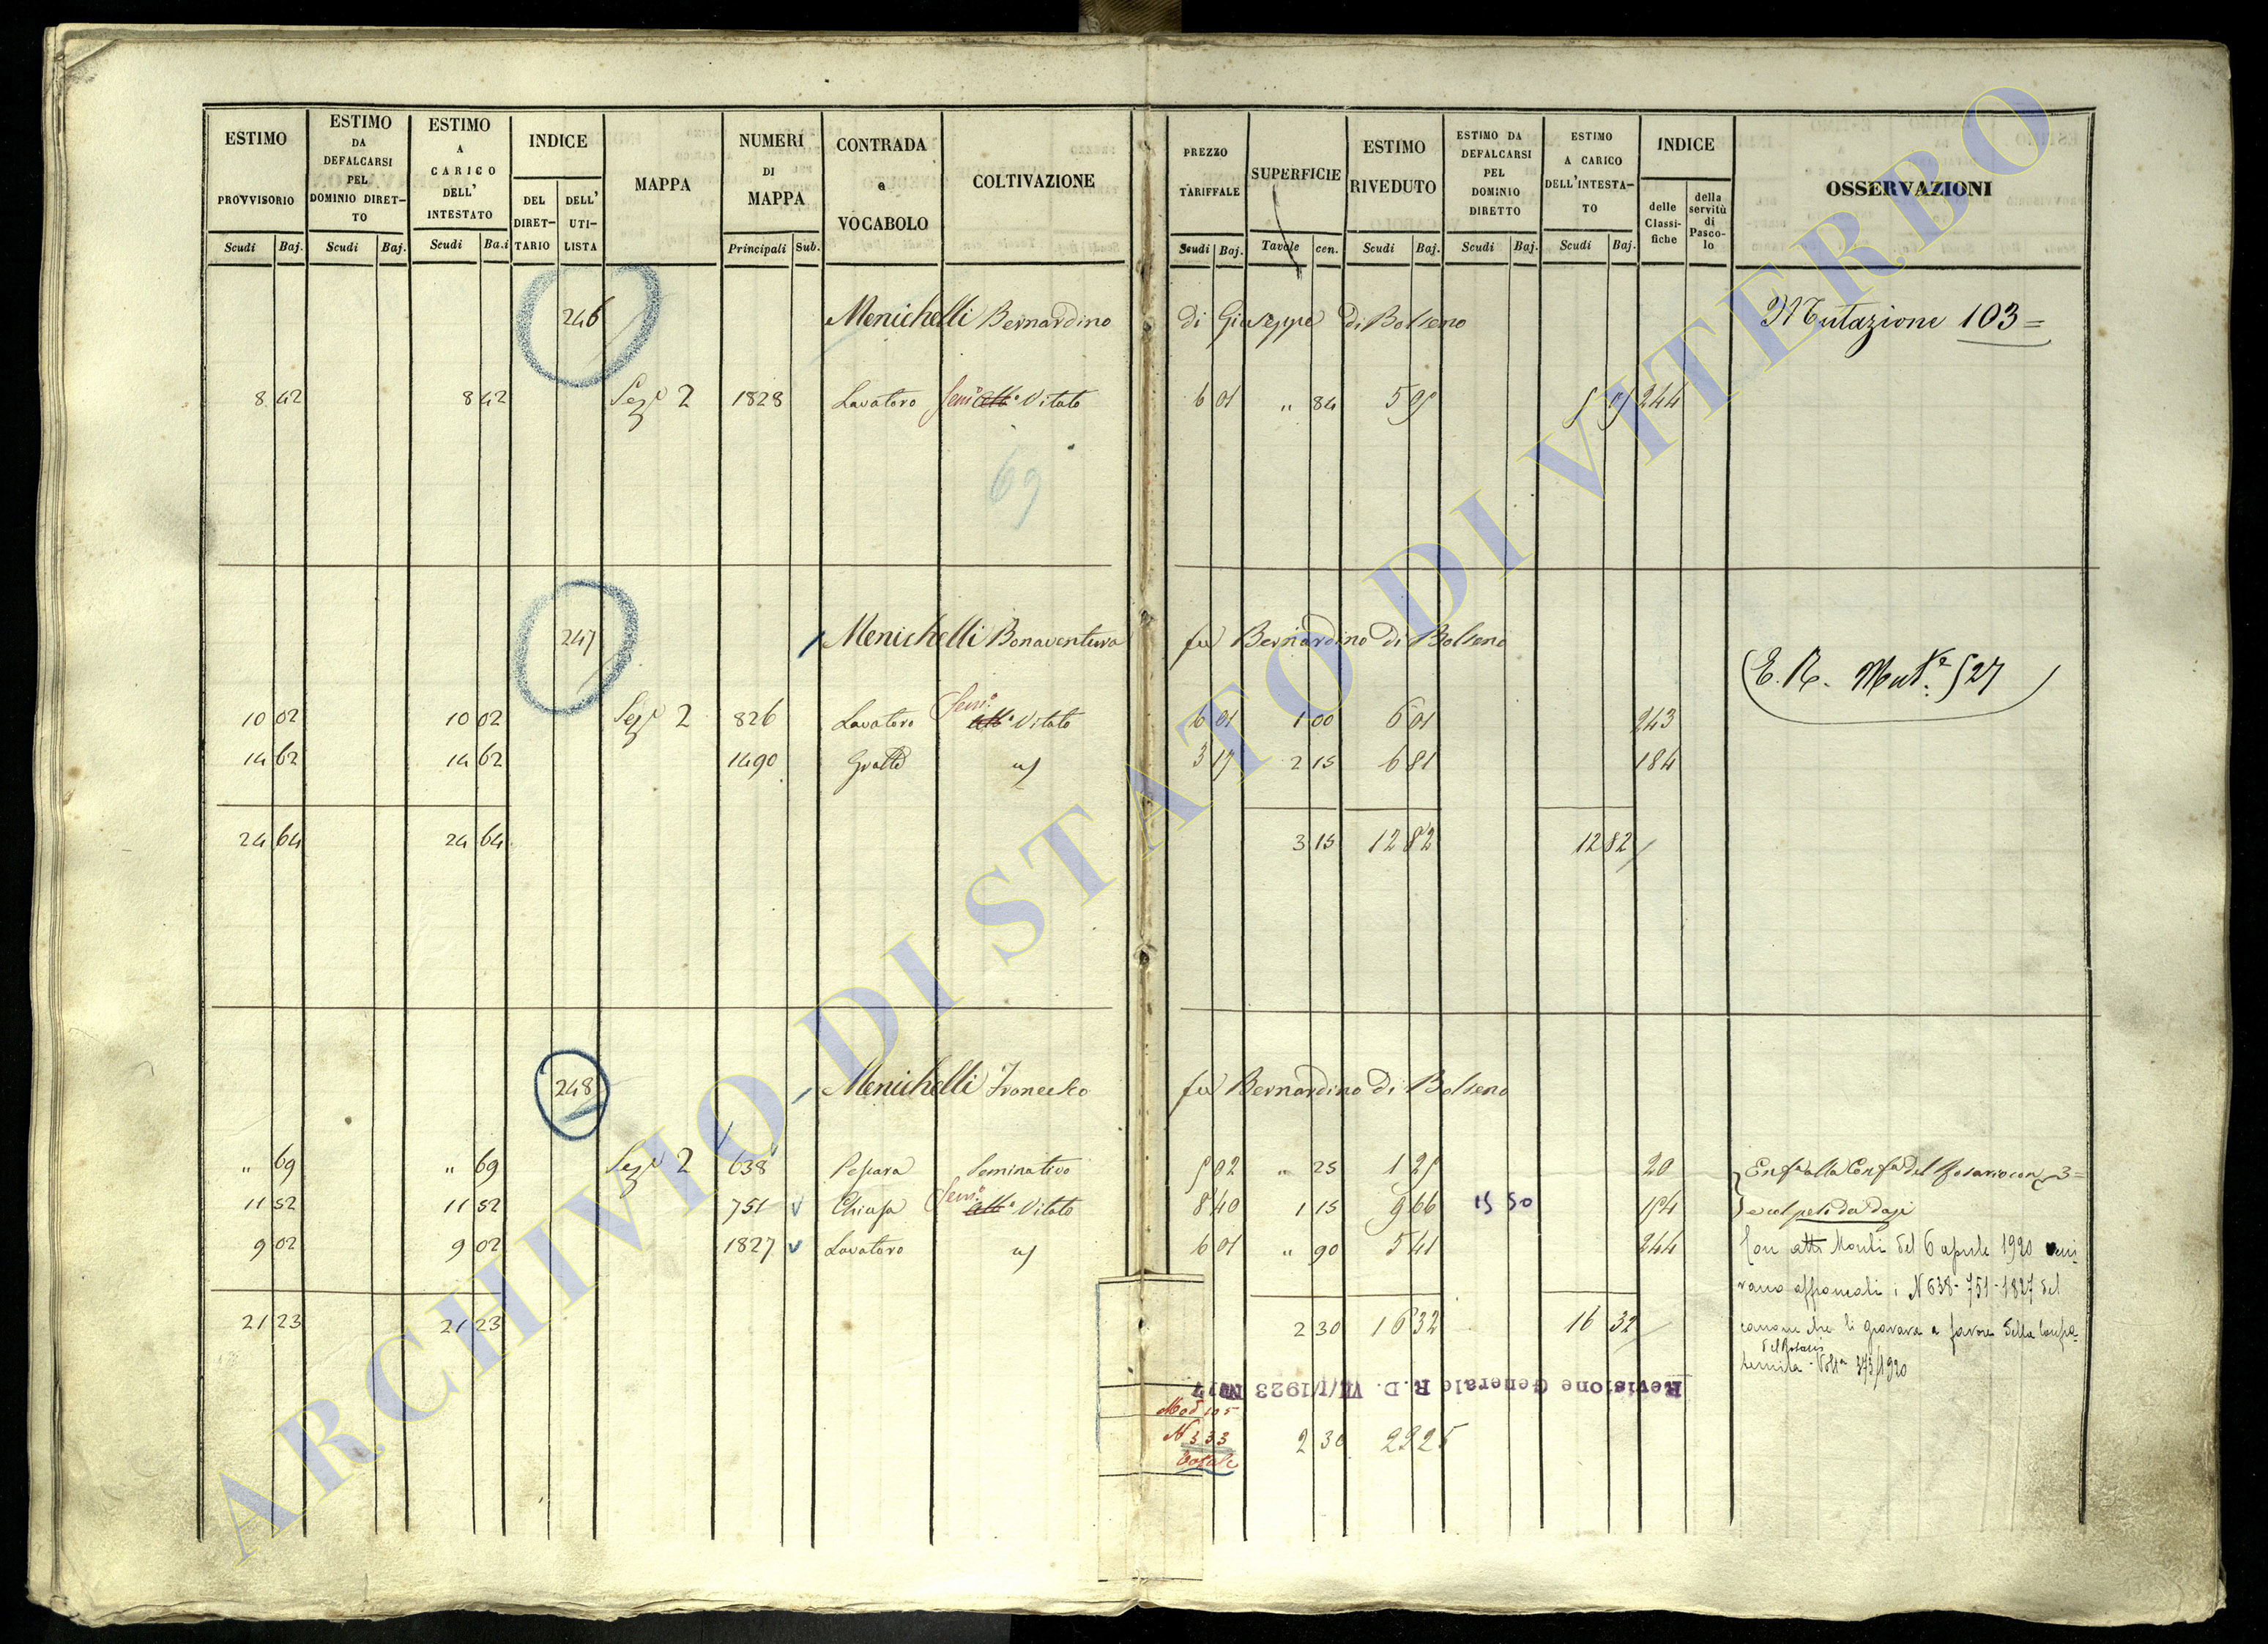 ESTIMO PROVVISORIO
Scudi Baj.
ESTIMO DA DEFALCARSI PEL DOMINIO DIRETTO
Scudi Baj.
ESTIMO A CARICO DELL' INTESTATO
Scudi Ba.i
INDICE
DEL DIRETTARIO
DELL' UTILISTA
MAPPA
NUMERI DI MAPPA
Principali Sub.
CONTRADA e VOCABOLO
COLTIVAZIONE
PREZZO TARIFFALE
Scudi Baj.
SUPERFICIE
Tavole cen.
ESTIMO RIVEDUTO
Scudi Baj.
ESTIMO DA DEFALCARSI PEL DOMINIO DIRETTO
Scudi Baj.
ESTIMO A CARICO DELL'INTESTATO
Scudi Baj.
INDICE
delle Classifiche
della servitù di Pascolo
OSSERVAZIONI
246 Menichelli Bernardino di Giuseppe di Bolseno Mutazione 103=
8 42 8 42 Sezᵉ 2 1828 Lavatoro Semᵒ Vitato 6 01 " 84 5 05 5 05 244
69
247 Menichelli Bonaventura fu Bernardino di Bolseno
(E. R. Mutᵉ: 527
10 02 10 02 Sezᵉ 2 826 Lavatoro Semᵒ Vitato 6 01 1 00 6 01 243
14 62 14 62 1490 Gratte 3 17 2 15 6 81 184
24 64 24 64 3 15 12 82 12 82
248 Menichelli Francesco fu Bernardino di Bolseno
" 69 " 69 Sezᵉ 2 638 Pescara Seminativo 5 02 " 25 1 25 20 Enfᵃ alla Confᵃ del Rosario con 3=
11 52 11 52 751 v Chiusa Semᵒ Vitato 8 40 1 15 9 66 15 50 154
9 02 9 02 1827 v Lavatoro 6 01 " 90 5 41 244 Con atto Monti del 6 aprile 1920 veni-
vano affrancati i N 638-751-1827 del
21 23 21 23 2 30 16 32 16 32 canone che li gravava a favore della Confra-
del Rosario
ternita - Volᵃ 373/1920
Revisione Generale R. D. VII/I/1923 N 17
Mod 105
N 333 2 30 22 25
ARCHIVIO DI STATO DI VITERBO